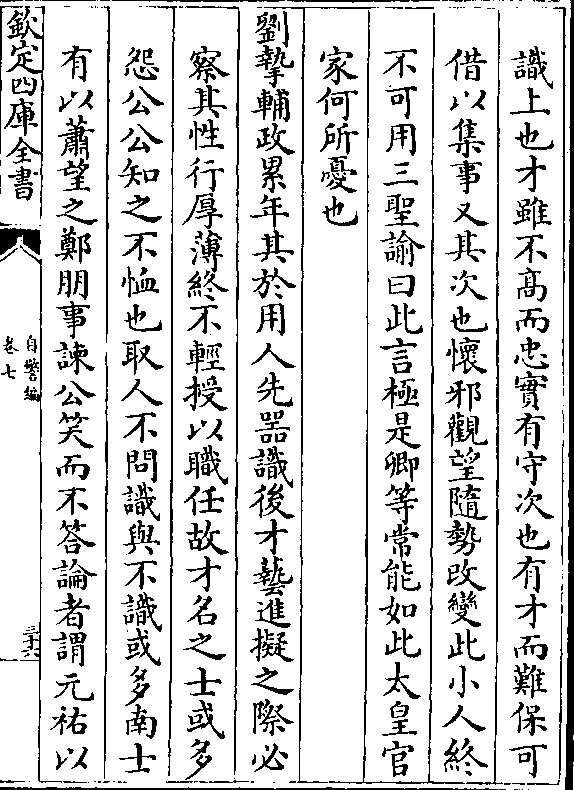 識上也才雖不髙而忠實有守次也有才而難保可
借以集事又其次也懷邪觀望隨勢改變此小人終
不可用三聖諭曰此言極是卿等常能如此太皇官
家何所憂也
劉摯輔政累年其於用人先器識後才藝進擬之際必
察其性行厚薄終不輕授以職任故才名之士或多
怨公公知之不恤也取人不問識與不識或多南士
有以蕭望之鄭朋事諫公笑而不答論者謂元祐以
欽定四庫全書
自警編
卷七
三十六